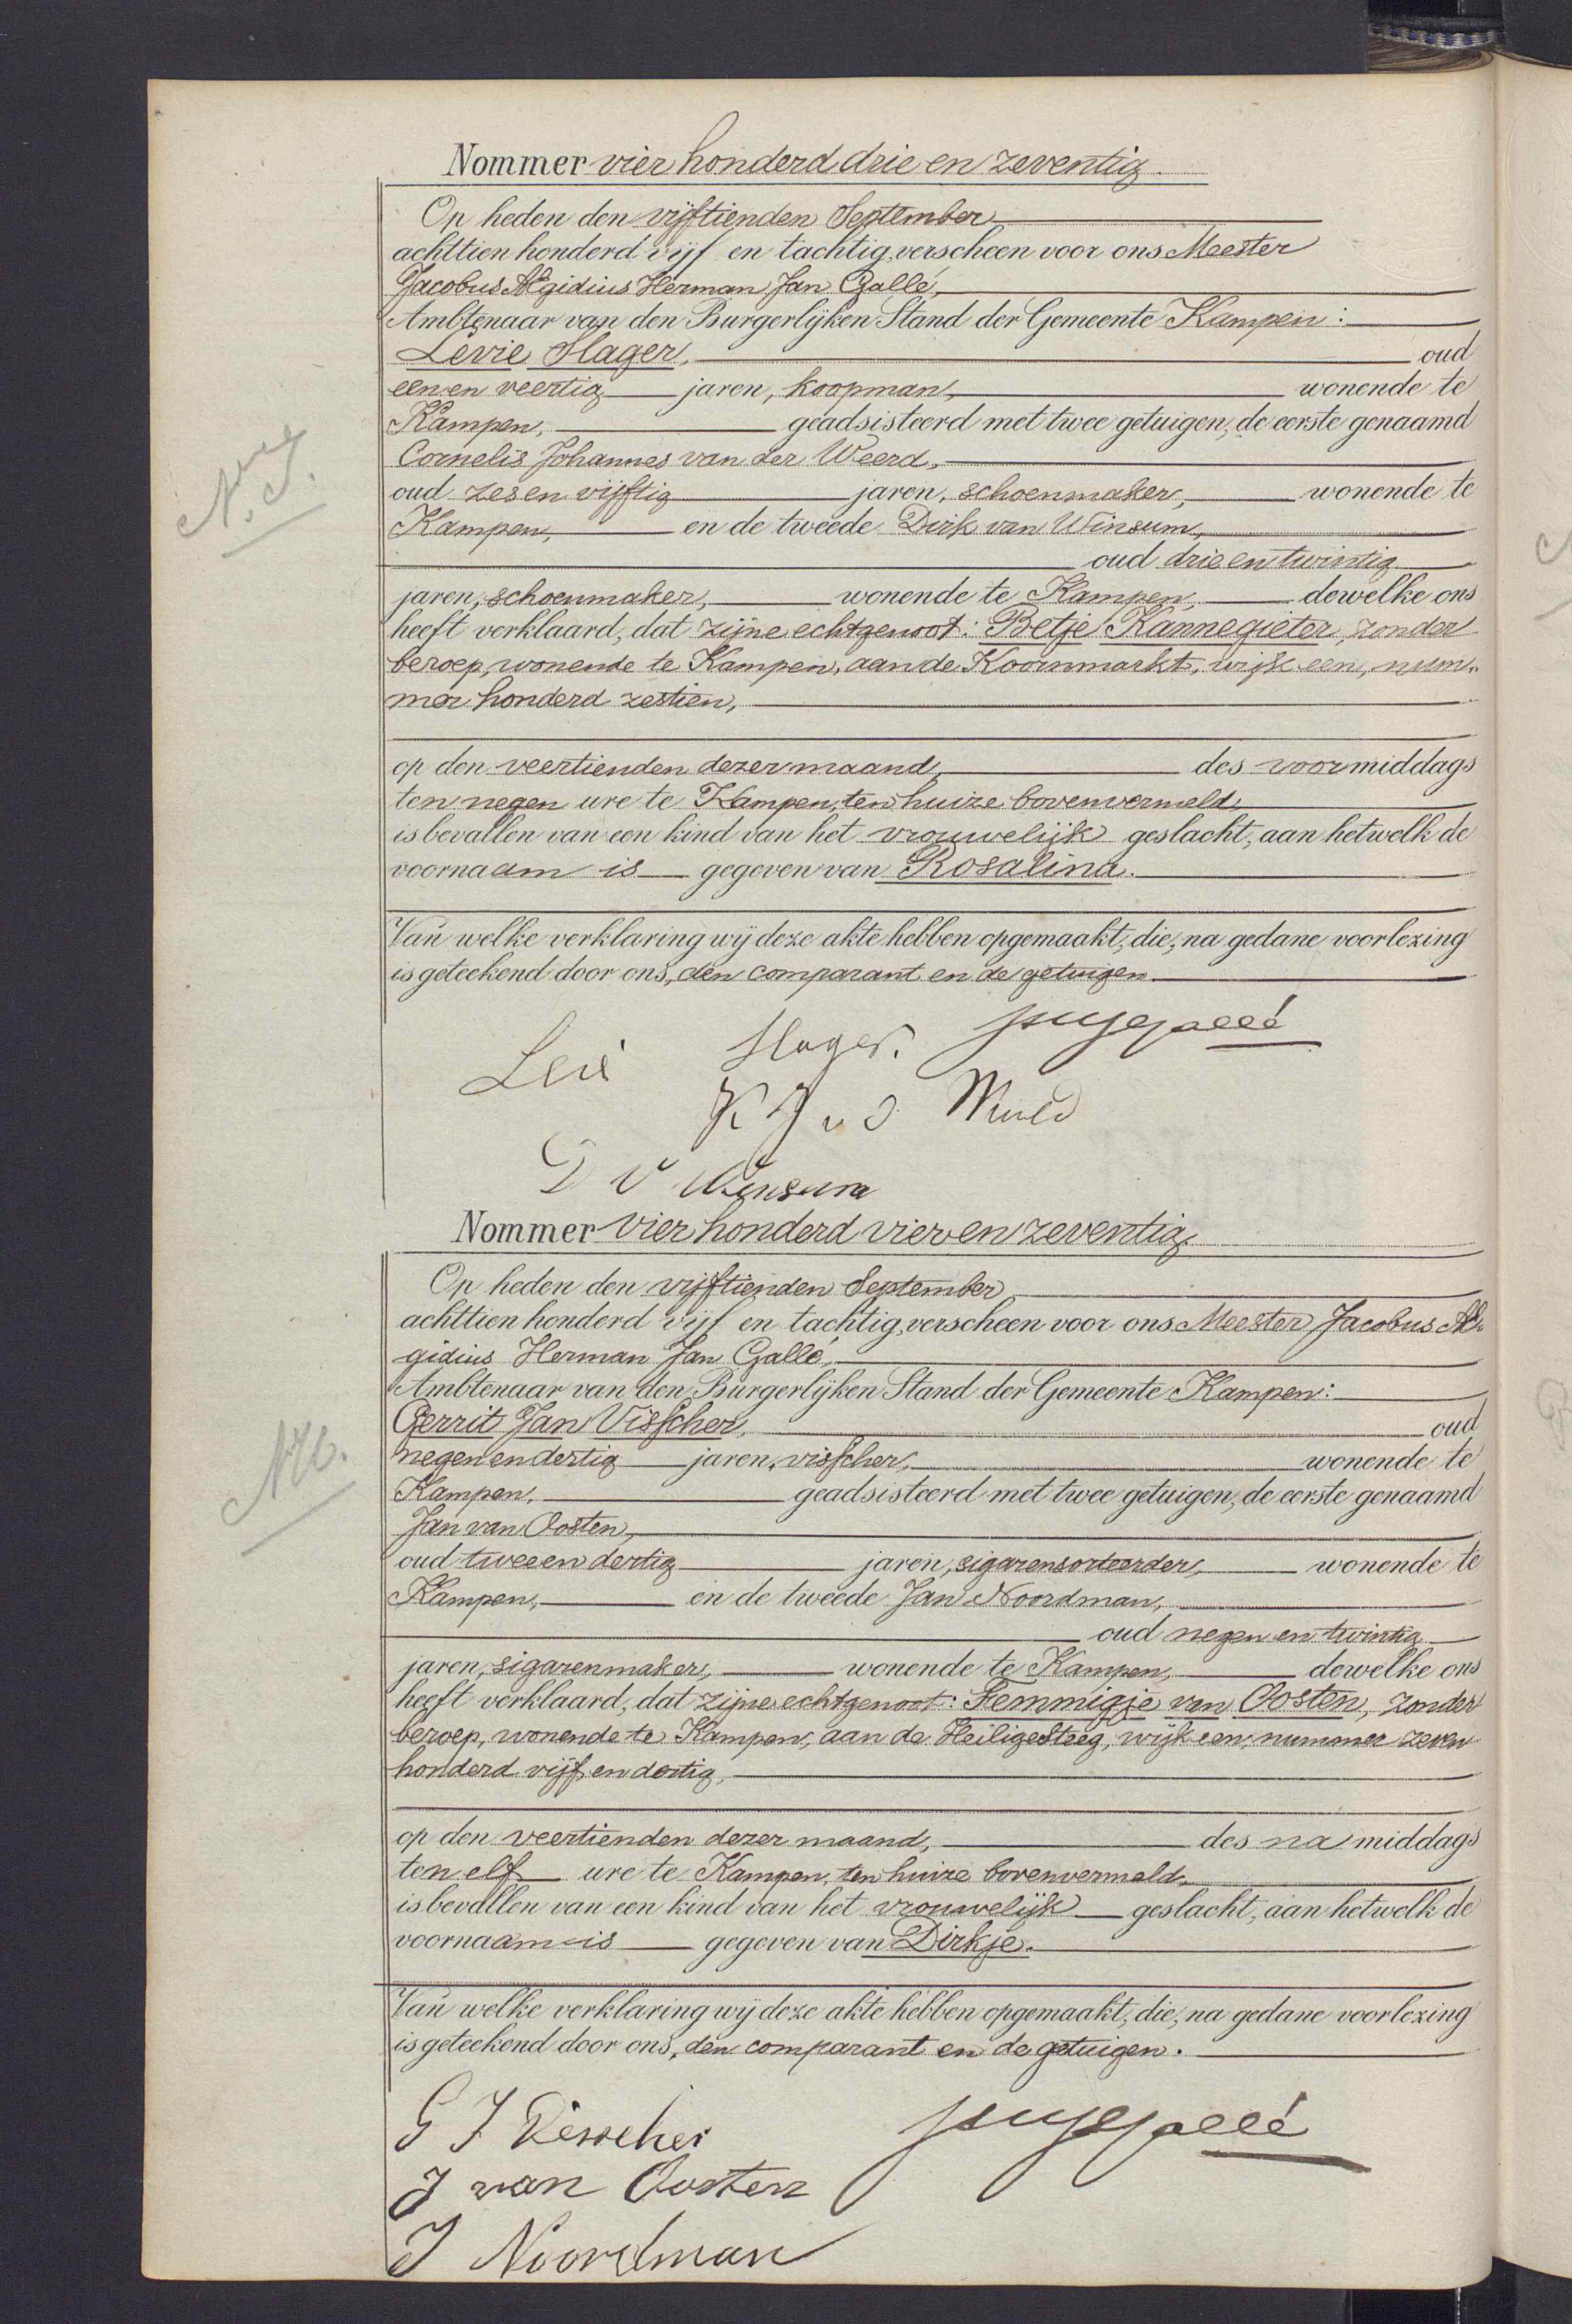 Nommer vier honderd drie en zeventig.
Op heden den vijftienden September
achttien honderd vijf en tachtig, verscheen voor ons Meester
Jacobus AEgidius Herman Jan Gallé,
Ambtenaar van den Burgerlijken Stand der Gemeente Kampen:
Levie Slager, oud
een en veertig jaren, koopman, wonende te
Kampen, geadsisteerd met twee getuigen, de eerste genaamd
Cornelis Johannes van der Weerd,
oud zes en vijftig jaren, schoenmaker, wonende te
Kampen, en de tweede Dirk van Winsum,
oud drie en twintig
jaren, schoenmaker, wonende te Kampen, dewelke ons
heeft verklaard, dat zijne echtgenoot: Betje Kannegieter, zonder
beroep, wonende te Kampen, aan de Koornmarkt, wijk een, num-
mer honderd zestien,
op den veertienden dezer maand, des voormiddags
ten negen ure te Kampen, ten huize bovenvermeld,
is bevallen van een kind van het vrouwelijk geslacht, aan hetwelk de
voornaam is gegeven van Rosalina.
Van welke verklaring wij deze akte hebben opgemaakt, die, na gedane voorlezing
is geteekend door ons, den comparant en de getuigen.
Slager. Gallé
K J v d
D v Winsum
Nommer vier honderd vier en zeventig.
Op heden den vijftienden September
achttien honderd vijf en tachtig, verscheen voor ons Meester Jacobus AE-
gidius Herman Jan Gallé,
Ambtenaar van den Burgerlijken Stand der Gemeente Kampen:
Gerrit Jan Visscher, oud
negen en dertig jaren, visscher, wonende te
Kampen, geadsisteerd met twee getuigen, de eerste genaamd
Jan van Oosten,
oud twee en dertig jaren, sigarensorteerder, wonende te
Kampen, en de tweede Jan Noordman,
oud negen en twintig
jaren, sigarenmaker, wonende te Kampen, dewelke ons
heeft verklaard, dat zijne echtgenoot: Femmigje van Oosten, zonder
beroep, wonende te Kampen, aan de Heiligesteeg, wijk een, nummer zeven
honderd vijf en dertig,
op den veertienden dezer maand, des namiddags
ten elf ure te Kampen, ten huize bovenvermeld,
is bevallen van een kind van het vrouwelijk geslacht, aan hetwelk de
voornaam is gegeven van Dirkje.
Van welke verklaring wij deze akte hebben opgemaakt, die, na gedane voorlezing
is geteekend door ons, den comparant en de getuigen.
G J Visscher Gallé
J van Oosten
J Noordman